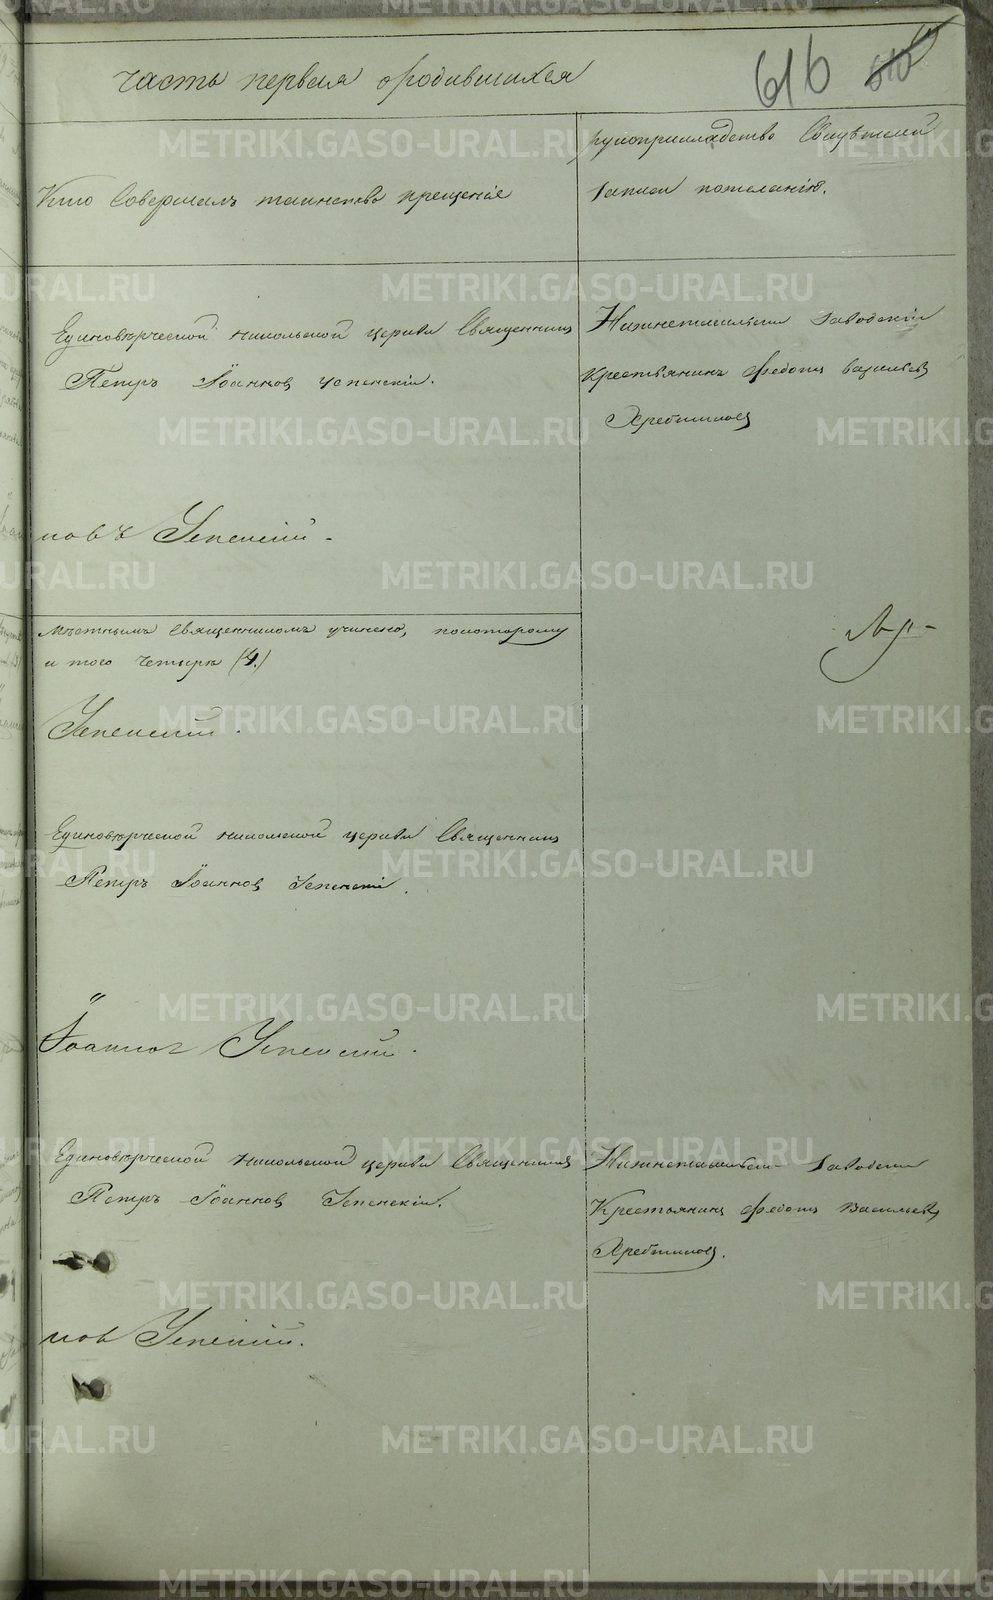 часть первая ородившихся
616
610
Кто Совершалъ таинство крещенiе
рукоприкладство Свидѣтелей
записи пожеланiю.
Единовѣрческой Никольской церкви Священникъ
Петръ Iоанновъ Успенскiй.
Нижнетагильскiй Заводскiй
Крестьянинъ Федотъ Васильевъ
Хребтиковъ
новъ Успенскiй.
Мѣстнымъ Священникомъ учинено, покоторому
и того Четыре (4.)
Успенскiй.
Единовѣрческой Никольской церкви Священникъ
Петръ Iоанновъ Успенскiй.
Iоаннов Успенскiй.
Единовѣрческой Никольской церкви Священникъ
Петръ Iоанновъ Успенскiй.
Нижнетагильскiй Заводскiй
Крестьянинъ Федотъ Васильевъ
Хребтиковъ.
нов Успенскiй.
METRIKI.GASO-URAL.RU